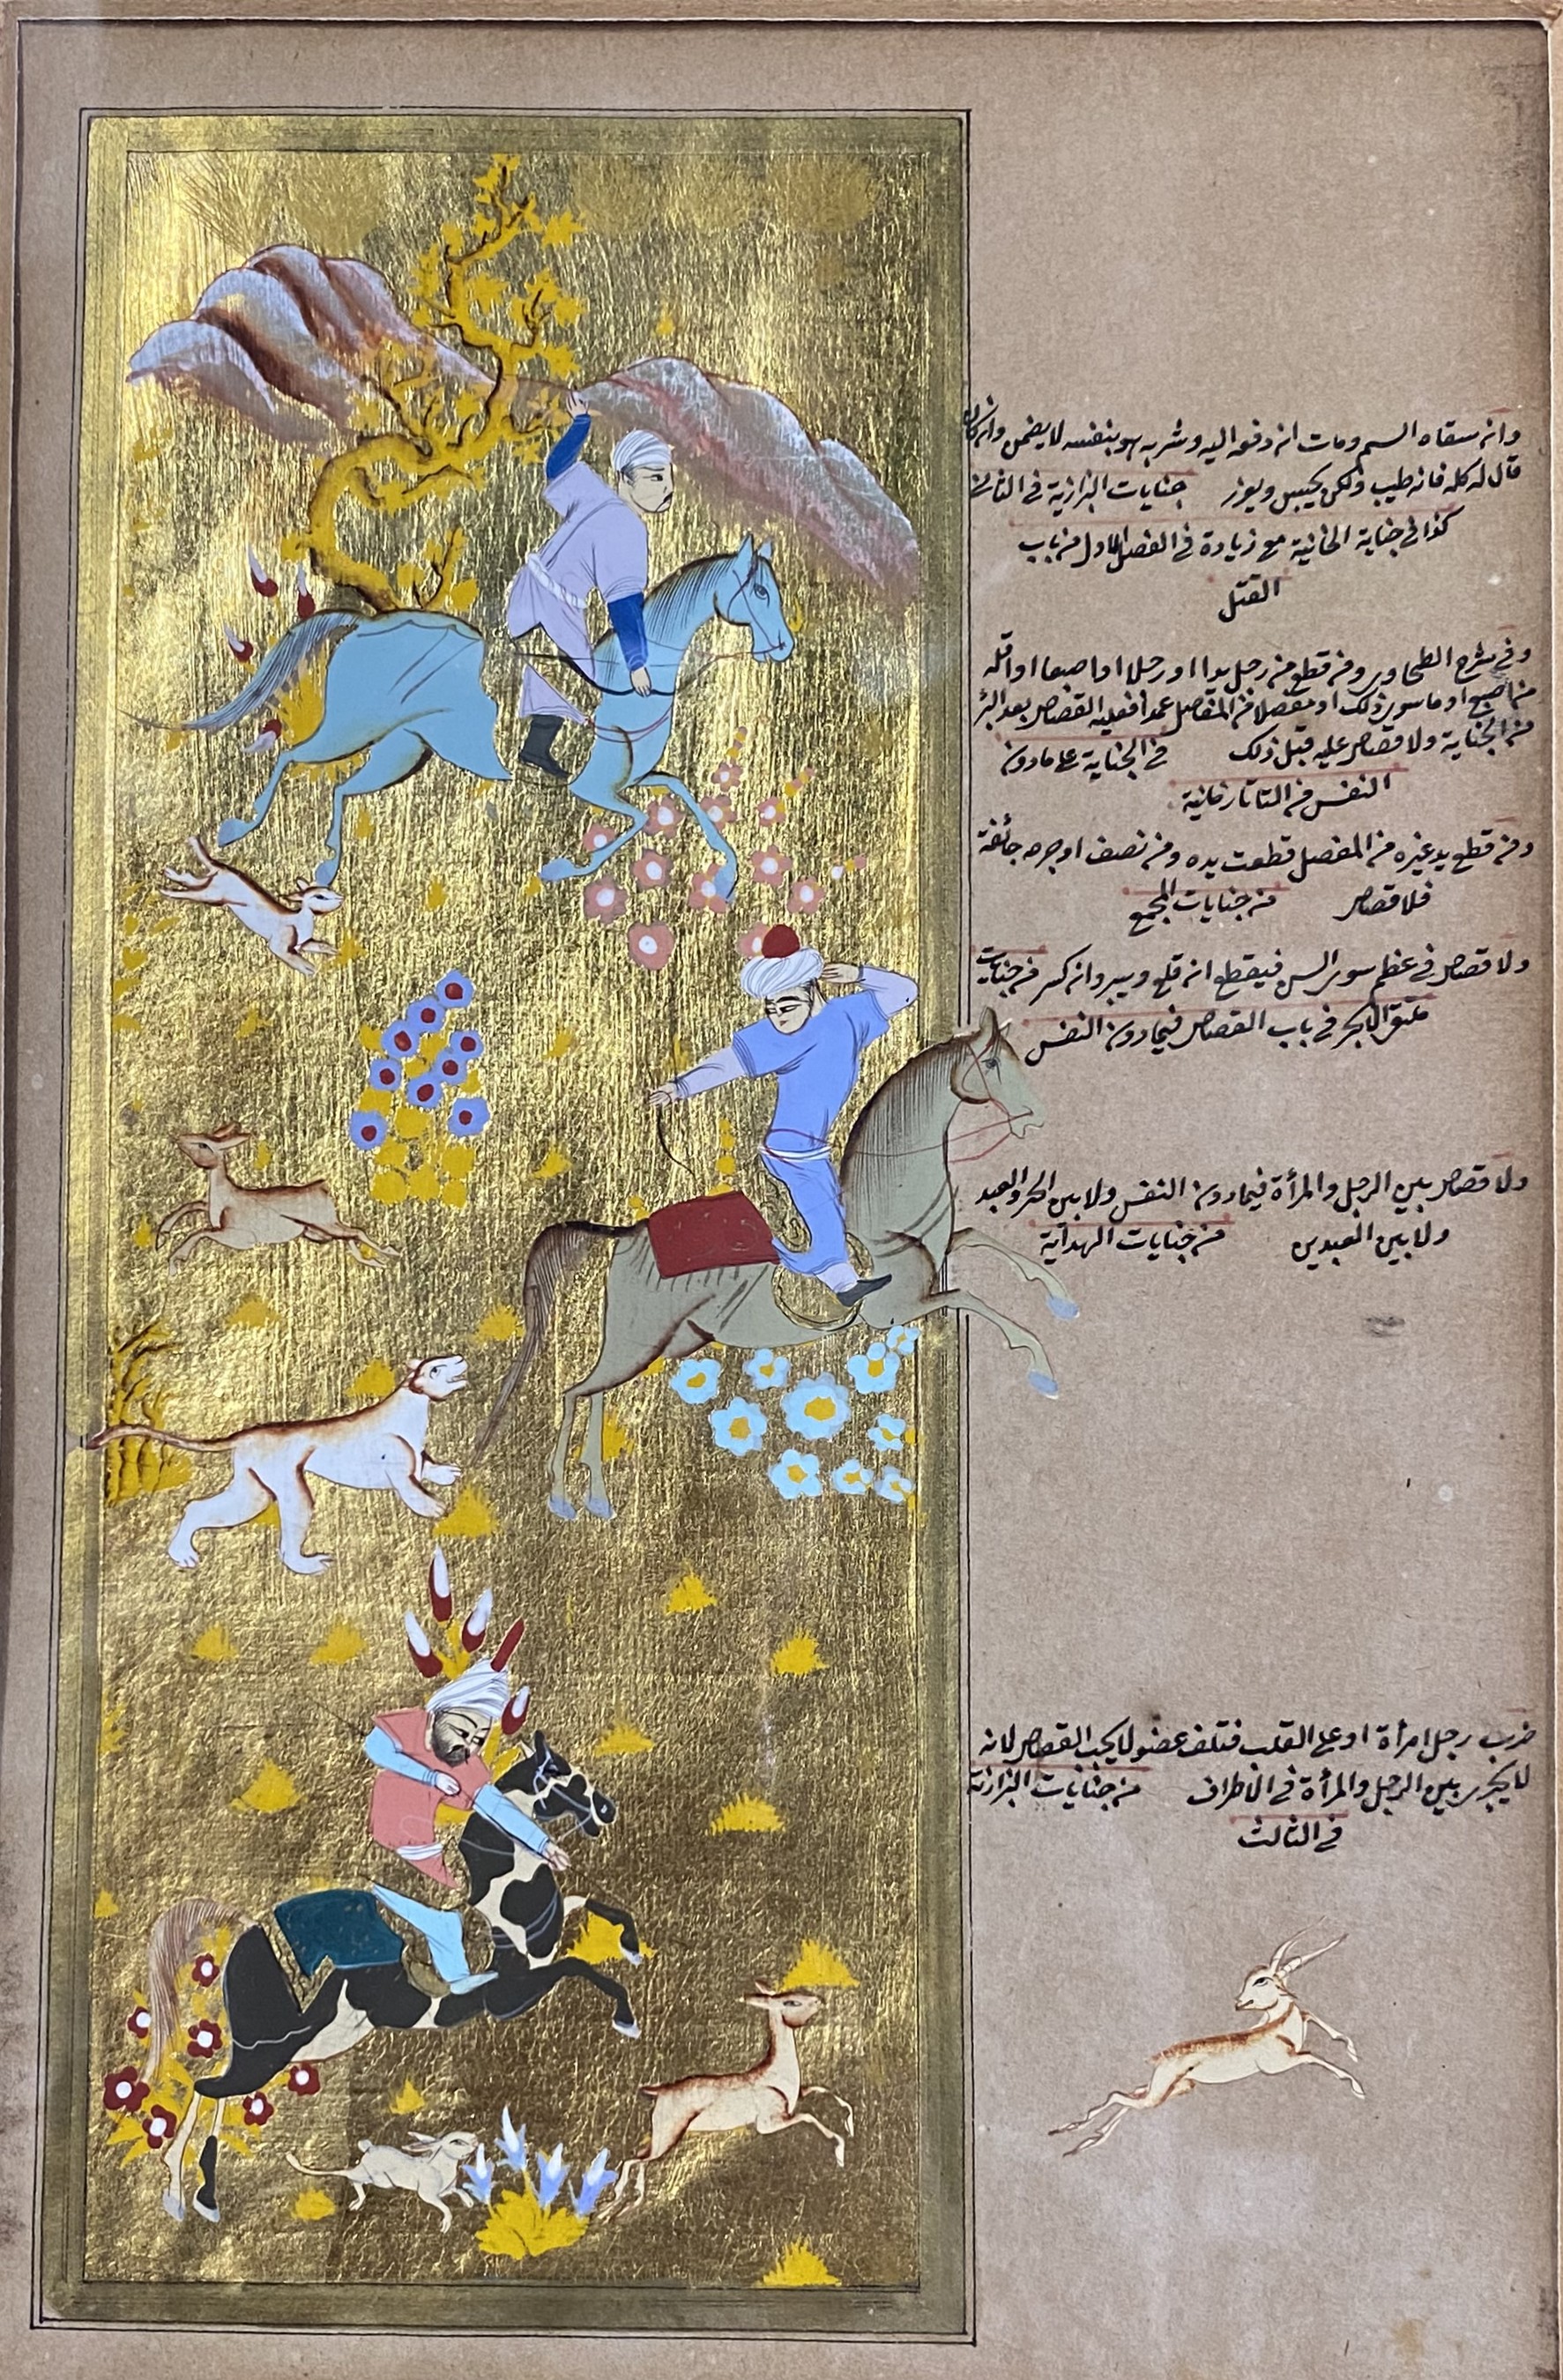 وان سقاه السم ومات ان دفعه اليه وشربه هو بنفسه لا يضمن وان كان
قال له كله فانه طيب ولكن يحبس ويعزر جنايات البزازية في الثاني
كذا في جناية الخانية مع زيادة في الفصل الاول من باب
القتل
وفي شرح الطحاوي ومن قطع من رجل يدا او رجلا او اصبعا او انملة
من اصبع او ما سوى ذلك او مفصلا من المفاصل عمدا فعليه القصاص بعد البرء
من الجناية ولا قصاص عليه قبل ذلك في الجناية على ما دون
النفس من التاتارخانية
ومن قطع يد غيره من المفصل قطعت يده ومن نصف او جرحه جائفة
فلا قصاص من جنايات المجمع
ولا قصاص في عظم سوى السن فيقطع ان قلع ويبرد ان كسر من جنايات
ملتقى الابحر في باب القصاص فيما دون النفس
ولا قصاص بين الرجل والمرأة فيما دون النفس ولا بين الحر والعبد
ولا بين العبدين من جنايات الهداية
ضرب رجل امرأة او على القلب فتلف عضو لا يجب القصاص لانه
لا يجرى بين الرجل والمرأة في الاطراف من جنايات البزازية
في الثالث